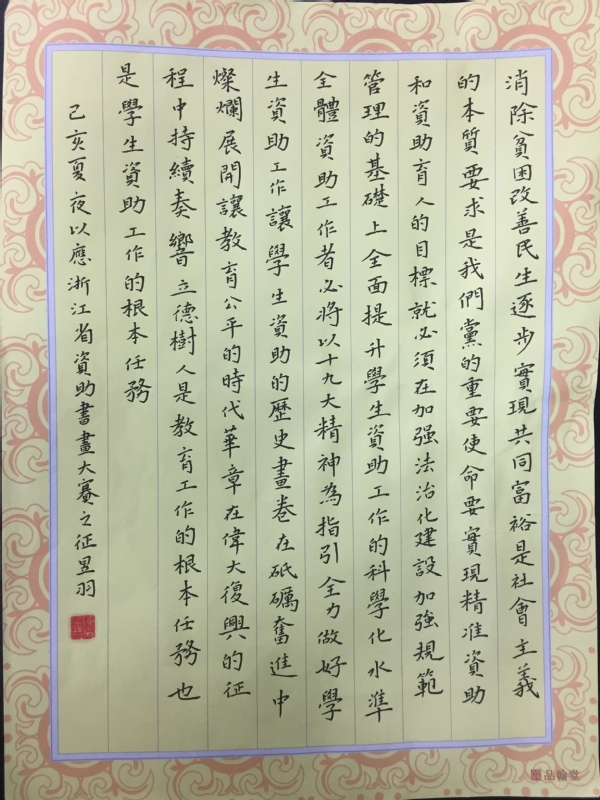 消除貧困改善民生逐步實現共同富裕是社會主義
的本質要求是我們黨的重要使命要實現精准資助
和資助育人的目標就必須在加强法治化建設加強規範
管理的基礎上全面提升學生資助工作的科學化水準
全體資助工作者必將以十九大精神為指引全力做好學
生資助工作讓學生資助的歷史畫卷在砥礪奮進中
燦爛展開讓教育公平的時代華章在偉大復興的征
程中持續奏響立德樹人是教育工作的根本任務也
是學生資助工作的根本任務
己亥夏夜以應浙江省資助書畫大賽之征昱羽
品翰堂